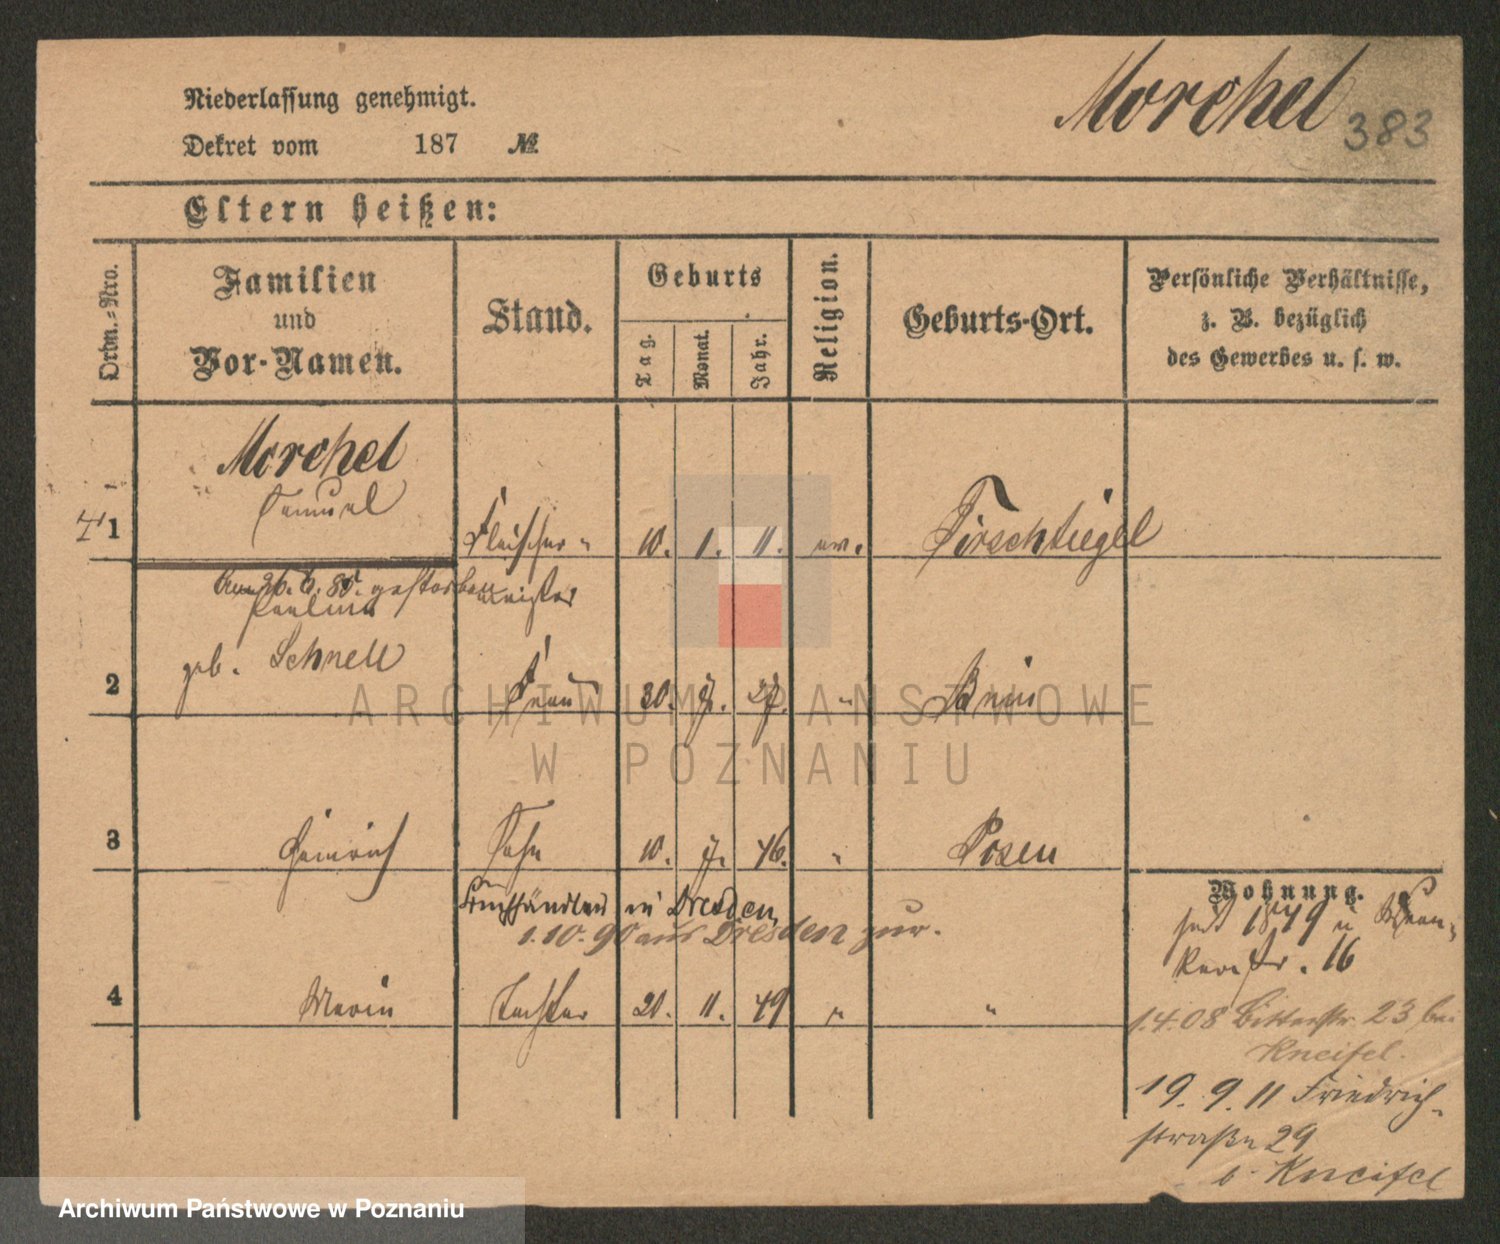 Niederlassung genehmigt.
Morchel
383
Dekret vom 187 №
Eltern heißen:
Ordn.-Nro.
Familien
und
Vor-Namen.
Stand.
Geburts
Tag.
Monat.
Jahr.
Religion.
Geburts-Ort.
Persönliche Verhältnisse,
z. B. bezüglich
des Gewerbes u. s. w.
Morchel
Samuel
1 Fleischer- 10. 1. 11. ev. Tirschtiegel
Am 26. 6. 85. gestorben
meister
Pauline
geb. Schnell
2 Frau 30. 7. 27. "
3 Heinrich Sohn 10. 7. 46. " Posen
Wohnung.
Buchhändler in Dresden,
1.10.90 aus Dresden zur.
seit 1879
16
4 Marie Tochter 20. 11. 49 " "
1.4.08 Bitterstr. 23 bei
Kneifel.
19. 9. 11 Friedrich-
straße 29
b. Kneifel
ARCHIWUM PAŃSTWOWE
W POZNANIU
Archiwum Państwowe w Poznaniu